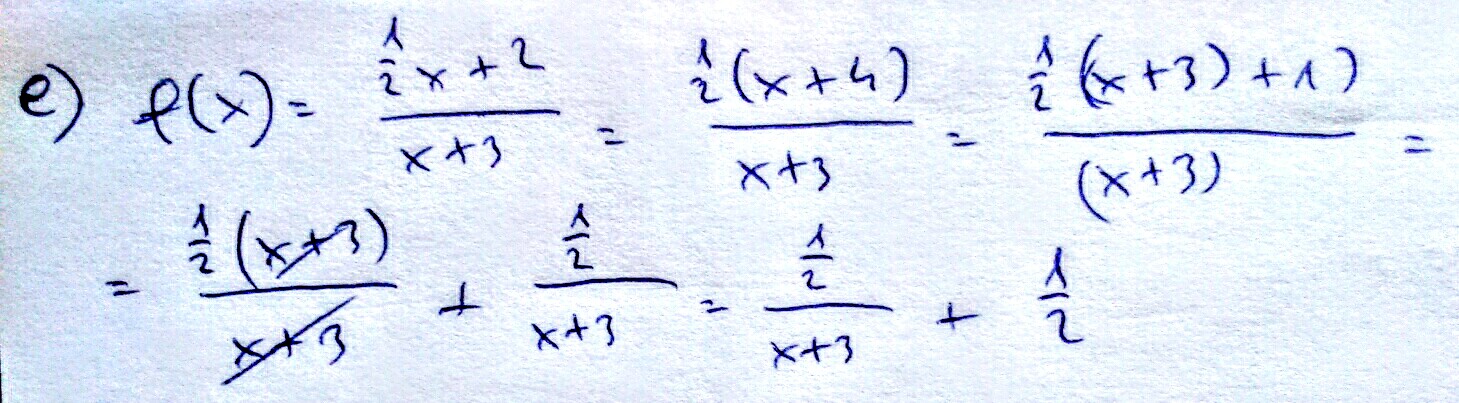 e) f(x) = (1/2 x + 2)/(x+3) = (1/2 (x+4))/(x+3) = (1/2 ((x+3)+1))/((x+3)) =
= (1/2 (x+3))/(x+3) + (1/2)/(x+3) = (1/2)/(x+3) + 1/2